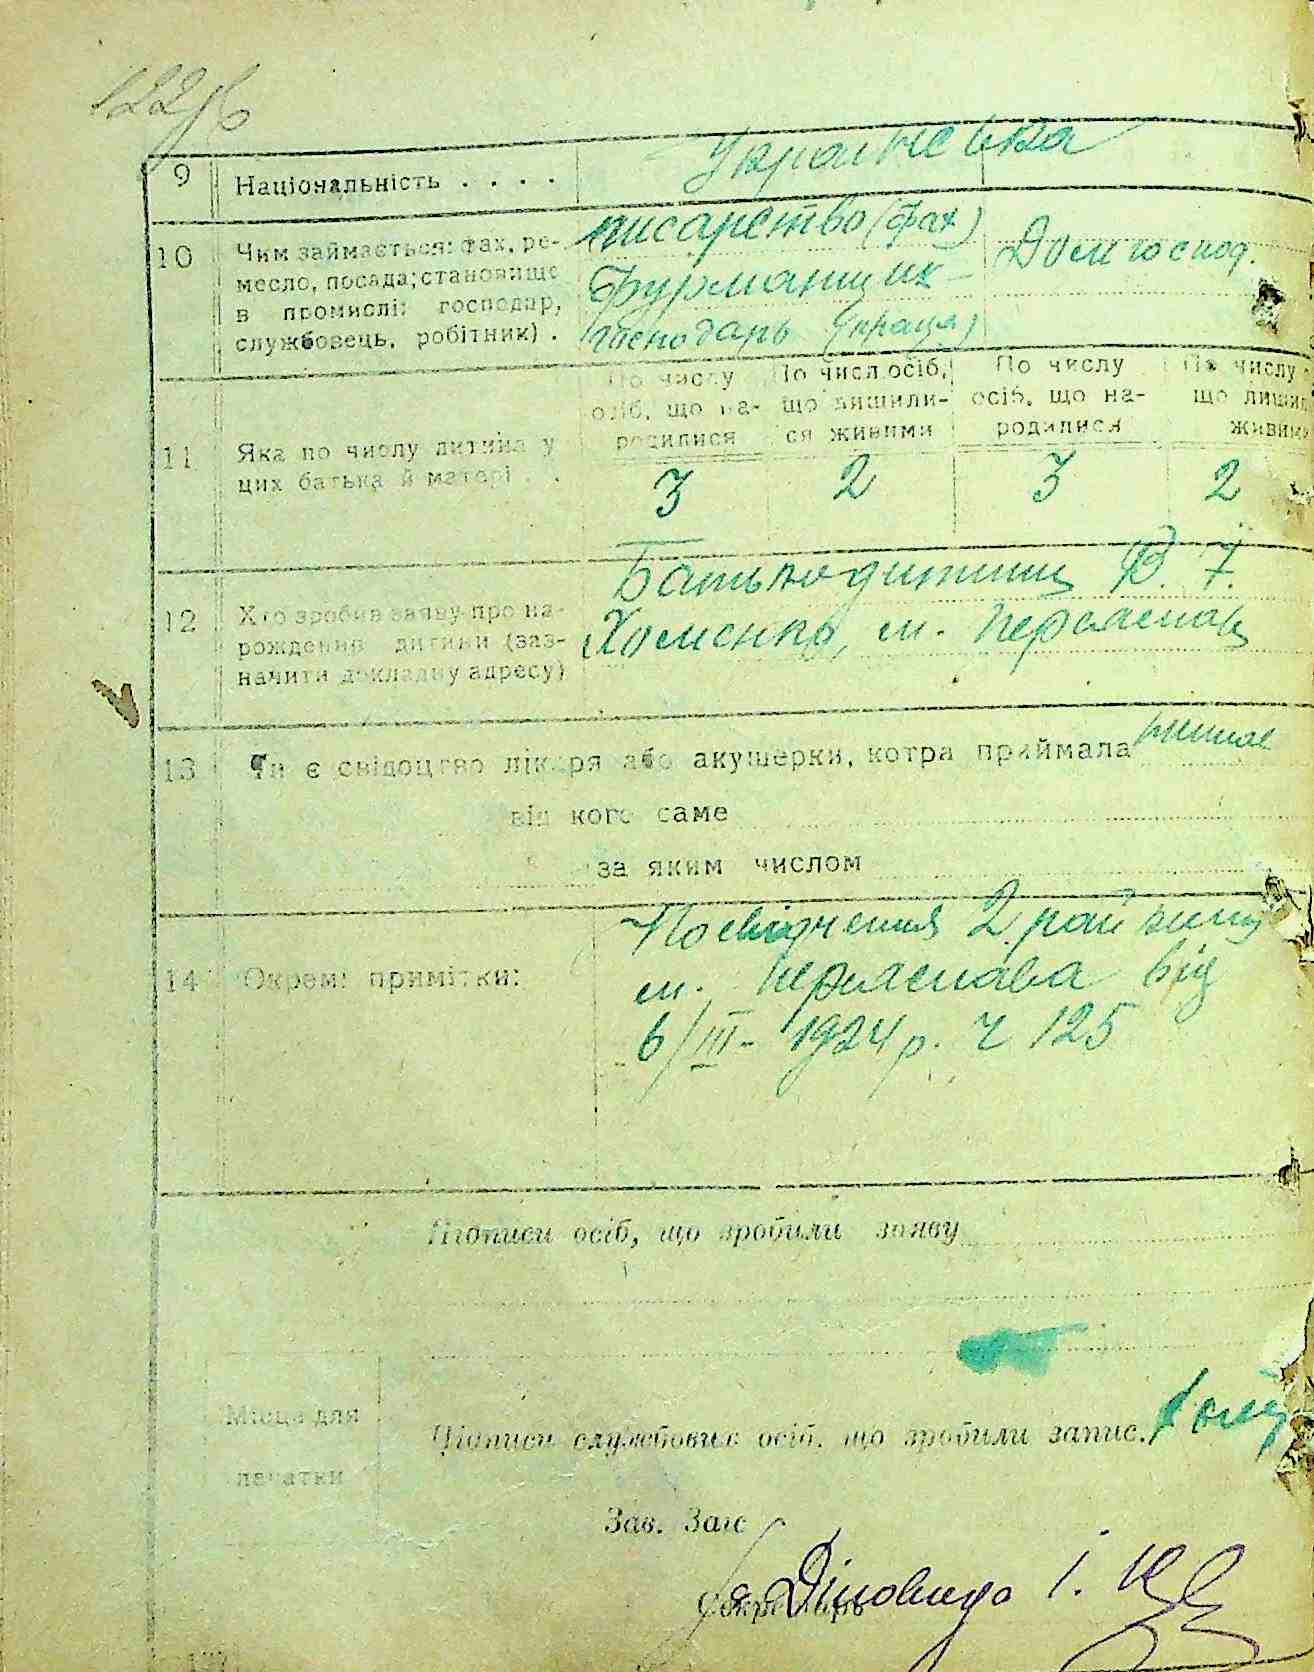 122/б
9 Національність . . . . Українська
10 Чим займається: фах, ре-
месло, посада; становище
в промислі: господар,
службовець, робітник) .
писарство (фах)
Фурманщик
господарь (праця)
Дом господ.
По числу
осіб, що на-
родилися
По числ.осіб,
що лишили-
ся живими
По числу
осіб, що на-
родилися
По числу
що лиши
живим
11 Яка по числу дитина у
цих батька й матері .
3 2 3 2
12 Хто зробив заяву про на-
рождення дитини (заз-
начити докладну адресу)
Батько дитини В. 7.
Хоменко, м. Переяслав
13 Чи є свідоцтво лікаря або акушерки, котра приймала
від кого саме
за яким числом
14 Окремі примітки:
Посвідчення 2 рай
м. Переяслава від
6/III- 1924 р. ч 125
Підписи осіб, що зробили заяву
Місце для
печатки
Підписи службових осіб, що зробили запис.
Зав. Загс
Секретарь